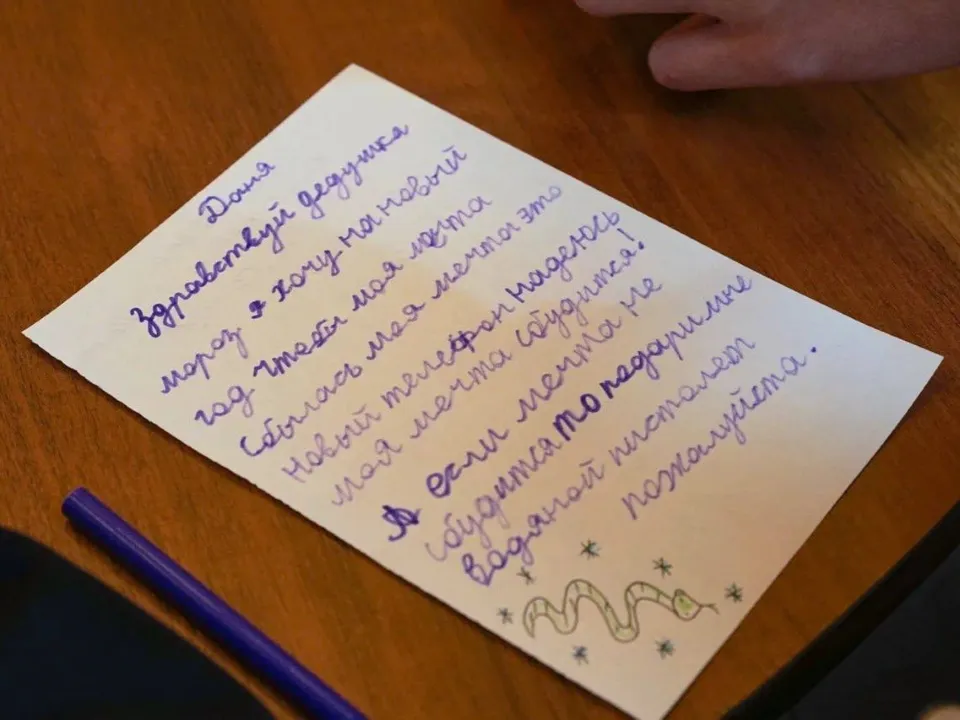 Даня
Здравствуй дедушка
мороз я хочу на новый
год чтобы моя мечта
сбылась моя мечта это
новый телефон надеюсь
моя мечта сбудится!
А если мечта не
сбудится то падари мне
водяной пистолет
пожалуйста.